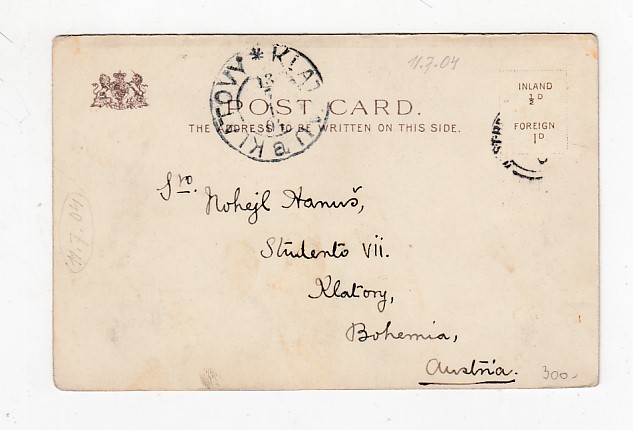 11.7.04
POST CARD.
THE ADDRESS TO BE WRITTEN ON THIS SIDE.
INLAND
½ D
FOREIGN
1D
KLATTAU * KLATOVY
Sro. Nohejl Hanuš,
Studento VII.
Klatovy,
Bohemia,
Austria.
11.7.04
300.-